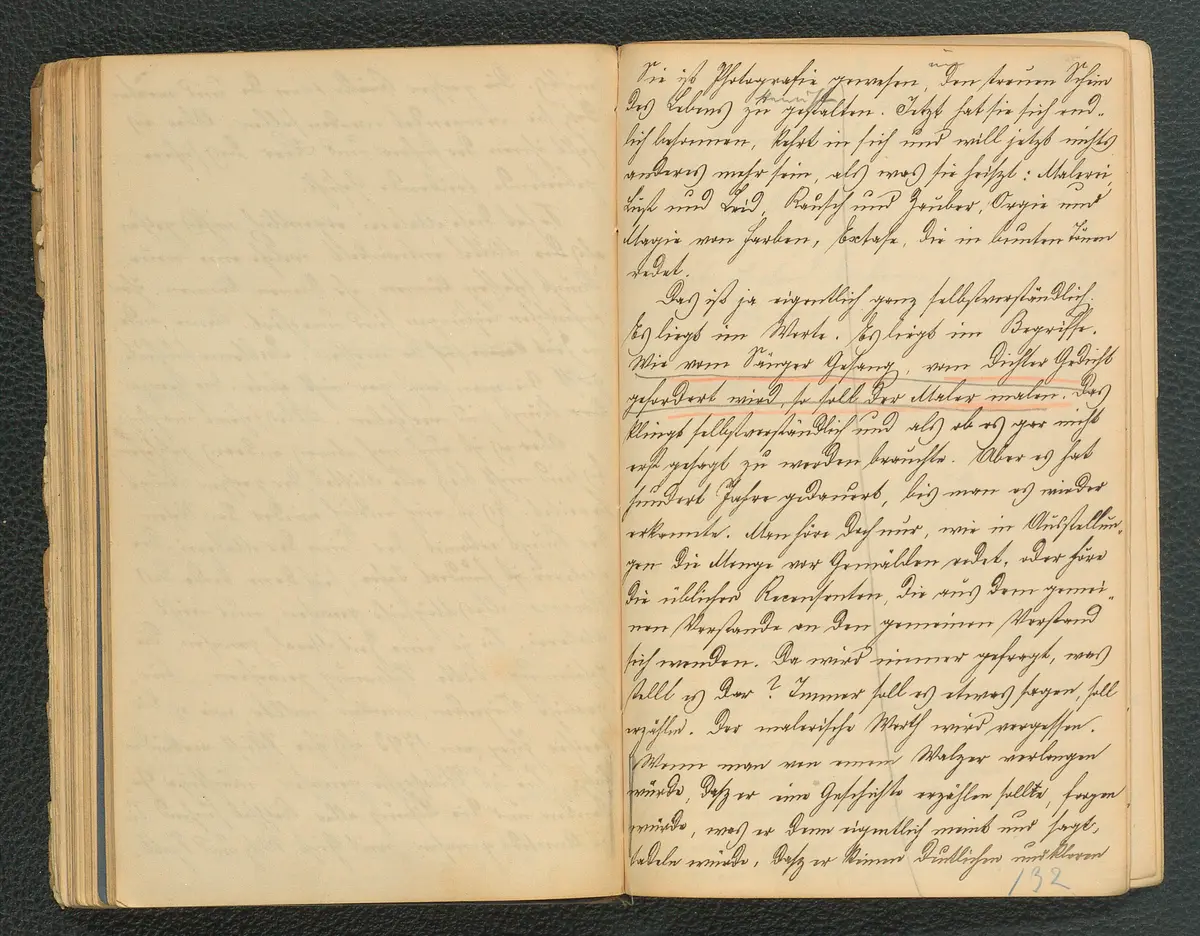 Sie ist Photografie gewesen, den treuen Schein
des Lebens zu gestalten. Jetzt hat sie sich end-
lich besonnen, kehrt in sich und will jetzt nichts
anderes mehr sein, als was sie heiszt: Malerei,
Lust und Leid, Rausch und Zauber, Orgie und
Magie von Farben, Extase, die in bunten Tönen
redet.
Das ist ja eigentlich ganz selbstverständlich.
Es liegt im Worte. Es liegt im Begriffe.
Wie vom Sänger Gesang, vom Dichter Gedicht
gefordert wird, so soll der Maler malen. Das
klingt selbstverständlich und als ob es gar nicht
erst gesagt zu werden brauchte. Aber es hat
hundert Jahre gedauert, bis man es wieder
erkannte. Man höre doch nur, wie in Ausstellun-
gen die Menge vor Gemälden redet, oder höre
die üblichen Recensenten, die aus dem gemei-
nen Verstande an den gemeinen Verstand
sich wenden. Da wird immer gefragt, was
stellt es dar? Immer soll es etwas sagen, soll
erzählen. Der malerische Werth wird vergessen.
Wenn man von einem Walzer verlangen
würde, dasz er eine Geschichte erzählen sollte, fragen
würde, was er denn eigentlich meint und sagt,
tadeln würde, dasz er keinen deutlichen und klaren
132